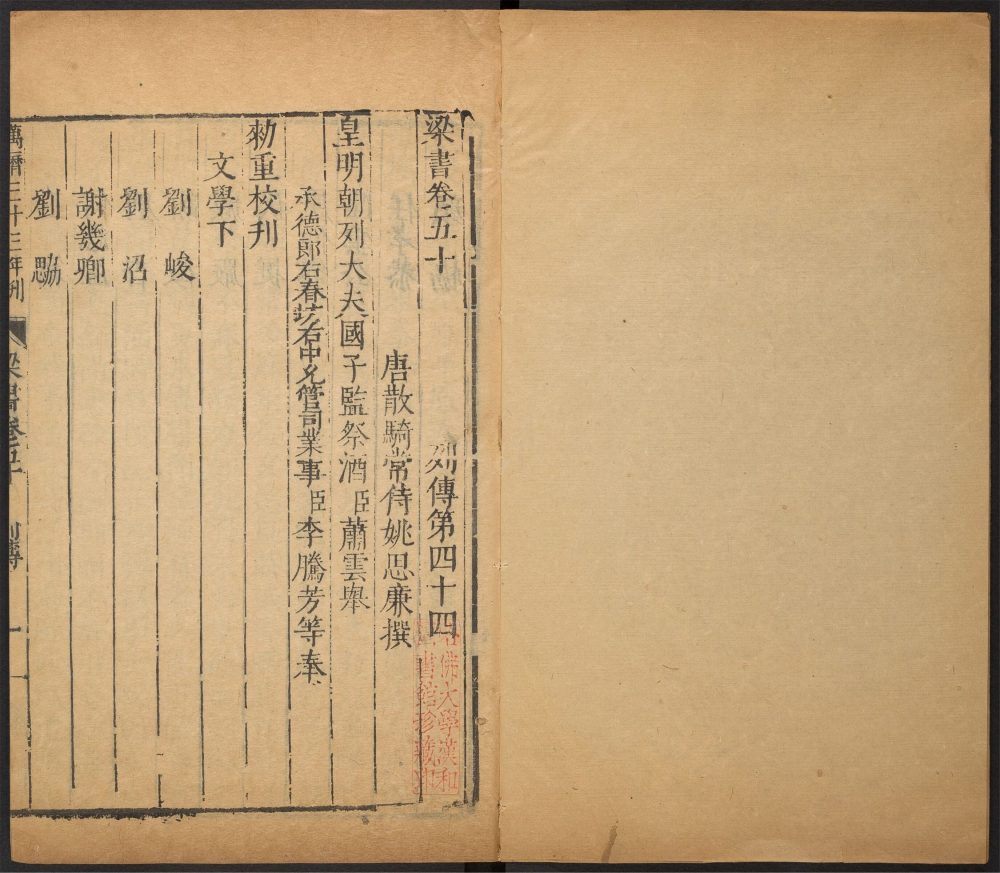 梁書卷五十 列傳第四十四
唐散騎常侍姚思廉撰
皇明朝列大夫國子監祭酒臣蕭雲舉
承德郎右春坊右中允管司業事臣李騰芳等奉
勑重校刋
文學下
劉峻
劉沼
謝幾卿
劉勰
萬曆三十三年刋
梁書卷五十
列傳
一
哈佛大學漢和
圖書館珍藏印